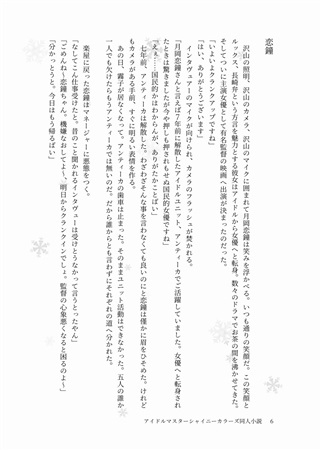 恋鐘
沢山の照明、沢山のカメラ、沢山のマイクに囲まれて月岡恋鐘は笑みを浮かべる。いつも通りの笑顔だ。この笑顔と
ルックス、長崎弁という方言を魅力とする彼女はアイドルから女優へと転身。数々のドラマでお茶の間を沸かせてきた。
そしてついに主演女優として有名監督の映画へ出演が決まったのだった。
「いまいよいよクランクアップですね」
「はい、ありがとうございます」
インタヴュアーのマイクが向けられ、カメラのフラッシュが焚かれる。
「月岡恋鐘さんと言えば7年前に解散したアイドルユニット、アンティーカでご活躍していました。女優へと転身され
たときは驚きましたが今や押しも押されもせぬ国民的な女優ですね」
「えぇ〜国民的かはわからんが、ありがたかことばい」
七年前、アンティーカは解散した。わざわざそんな事を言わなくても良いのにと恋鐘は僅かに眉をひそめた。けれど
もカメラがある手前、すぐに明るい表情を作る。
あの日、霧子が居なくなって。アンティーカの歯車は止まった。そのままユニット活動はできなかった。五人の誰か
一人でも欠けたらもうアンティーカでは無いのだ。だから誰からとも言わずにそれぞれの道へ分かれた。
楽屋に戻った恋鐘はマネージャーに悪態をつく。
「なしてこん仕事受けたと。昔のこと聞かれるインタヴューは受けとうなかって言うとったやん」
「ごめんね〜恋鐘ちゃん。機嫌なおしてよ〜、明日からクランクインでしょ。監督の心象悪くなると困るのよ〜」
「分かっとうと。今日はもう帰るばい」
アイドルマスターシャイニーカラーズ同人小説　6